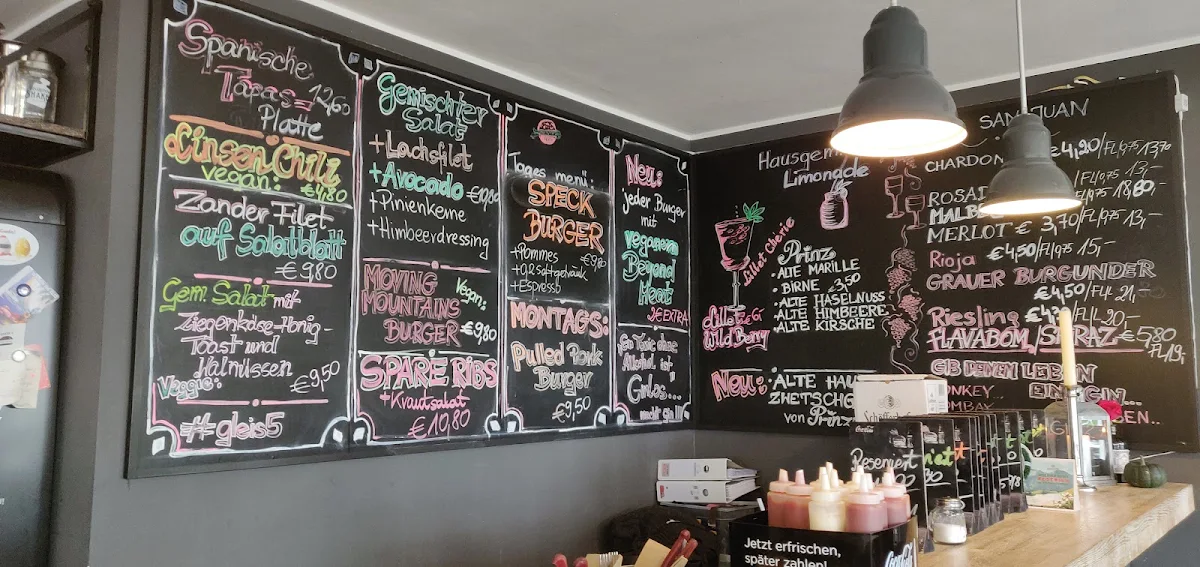 Spanische
Tapas= 12,60
Platte
Linsen Chili
vegan: €4,80
Zander Filet
auf Salatblatt
€9,80
Gem. Salat mit
Ziegenkäse-Honig-
Toast und
Walnüssen
Veggie: €9,50
#gleis5
Gemischter
Salat
+Lachsfilet
+Avocado €10,80
+Pinienkerne
+Himbeerdressing
MOVING
MOUNTAINS Vegan:
BURGER €9,80
SPARE RIBS
+Krautsalat
€10,80
Tages menü:
SPECK
BURGER
+Pommes €9,80
+0,2 Saftgetränk
+Espresso
MONTAGS:
Pulled Pork
Burger
€9,50
Neu:
jeder Burger
mit
veganem
Beyond
Meat
2€ EXTRA
Alkohol ist,
Hausgem
Limonade
Lillet Cherie
Wild Berry
Prinz
·ALTE MARILLE
·BIRNE 3,50
·ALTE HASELNUSS
·ALTE HIMBEERE
·ALTE KIRSCHE
Neu: ·ALTE HAU
ZWETSCHG
von Prinz
SAN JUAN
CHARDON €4,20/Fl 0,75 13,70
ROSA Fl 0,75 13,-
MALB Fl 0,75 18,80,-
MERLOT € 3,70/Fl 0,75 13,-
Rioja €4,50/Fl 0,75 15,-
GRAUER BURGUNDER
€4,50/Fl. 21,-
Riesling Fl. 20-
FLAVABOM/SHIRAZ €5,80
Fl 19,-
GIB DEINEM LEBEN
EIN GIN...
ONKEY
OMBAY
SEN..
Reserviert
Jetzt erfrischen,
später zahlen!
Coca-Cola